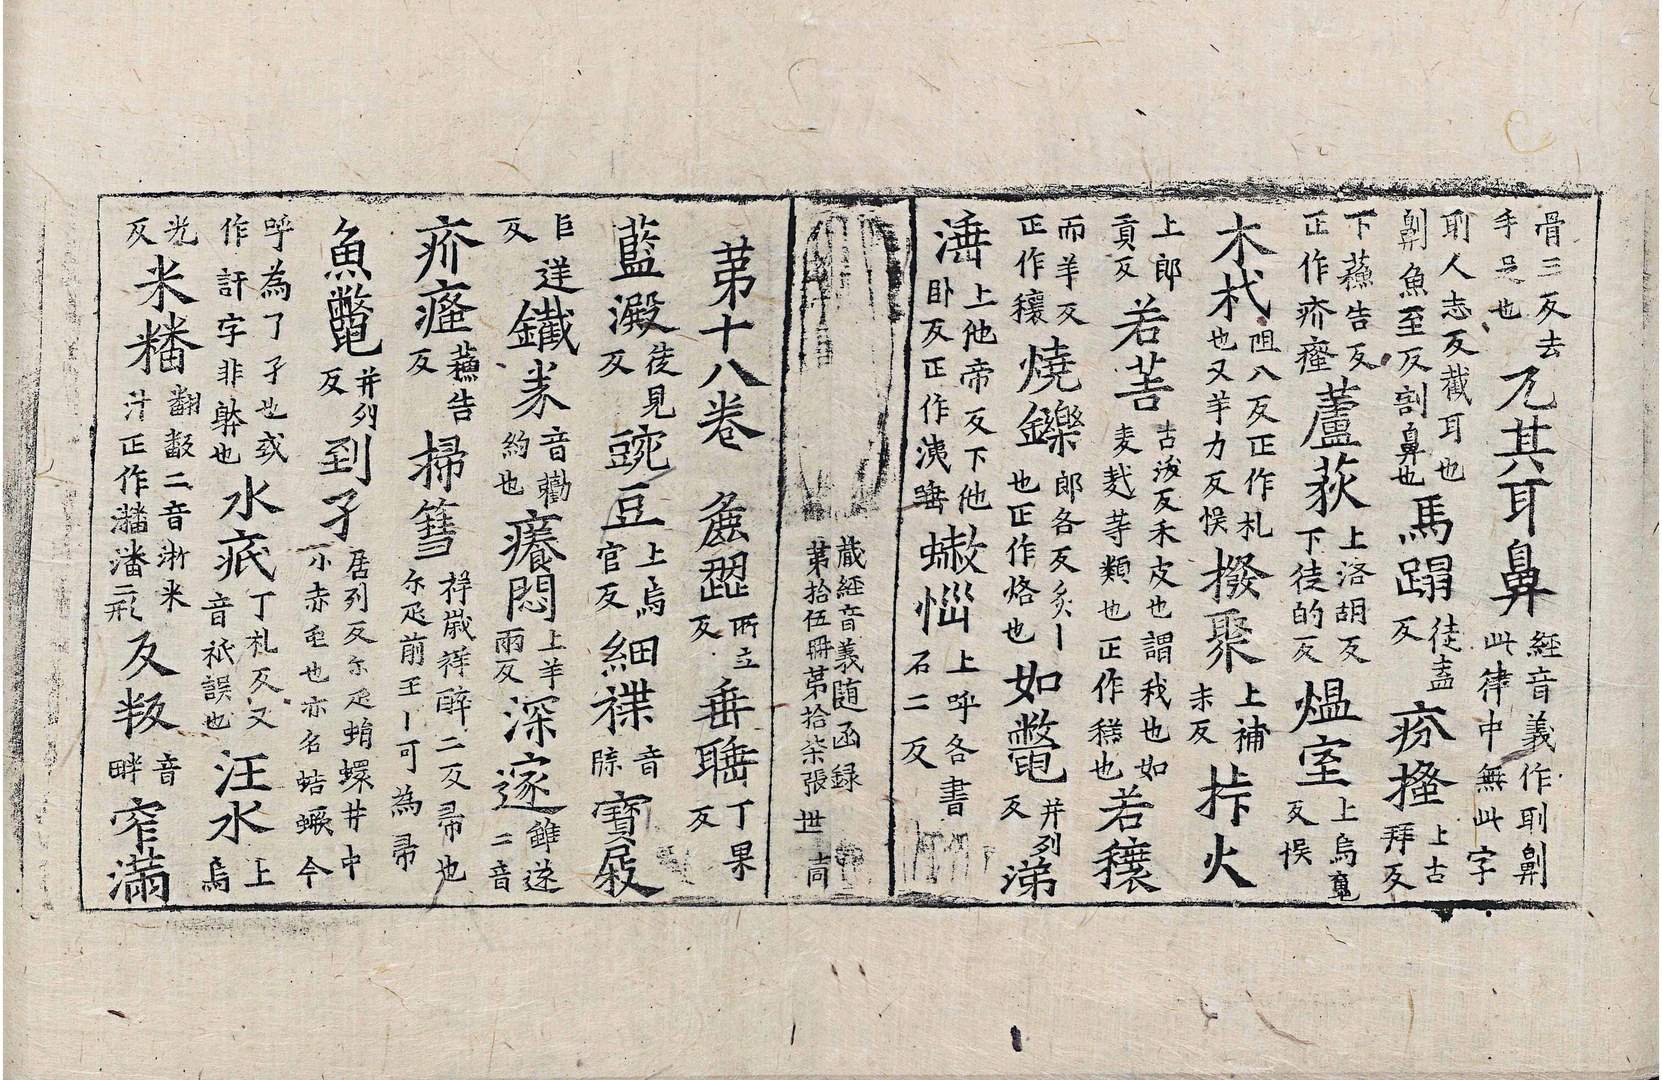 骨三反去手足也兀其耳鼻經音義作刵劓此律中無此字
刵人志反截耳也劓魚至反割鼻也馬蹋徒盍反疥搔上古拜反
下蘓告反正作疥瘙蘆荻上洛胡反下徒的反熅室上烏䰟反悮
木杙阻八反正作札也又羊力反悮撥聚上補末反㧊火
上郎貢反若䒷古汲反禾皮也謂我也如麦䴬䓁類也正作䅳也若穰
而羊反正作穰燒鑠郎各反炙丨也正作烙也如鼈并列反涕
涶上他帝反下他卧反正作洟𡍮蠍惱上呼各書石二反
藏經音義随函録
第拾伍冊第拾柒張 世 同
苐十八卷 麁澀所立反垂䏙丁果反
藍澱徒見反豌豆上烏官反細褋音牒寶屐
巨逆反鐵券音勸約也癢悶上羊兩反深邃雖遂二音
疥瘙蘓告反掃篲祥歲祥醉二反帚也尓疋前王丨可為帚
魚鼈并列反到孑居列反尓疋蜎蠉井中小赤䖝也亦名蛣蟩今
呼為了孑也或作訐字非躰也水疷丁札反又音祇誤也汪水上烏
光反米䊩翻𩙪二音淅米汁正作𤄫潘二形反叛音畔窄滿